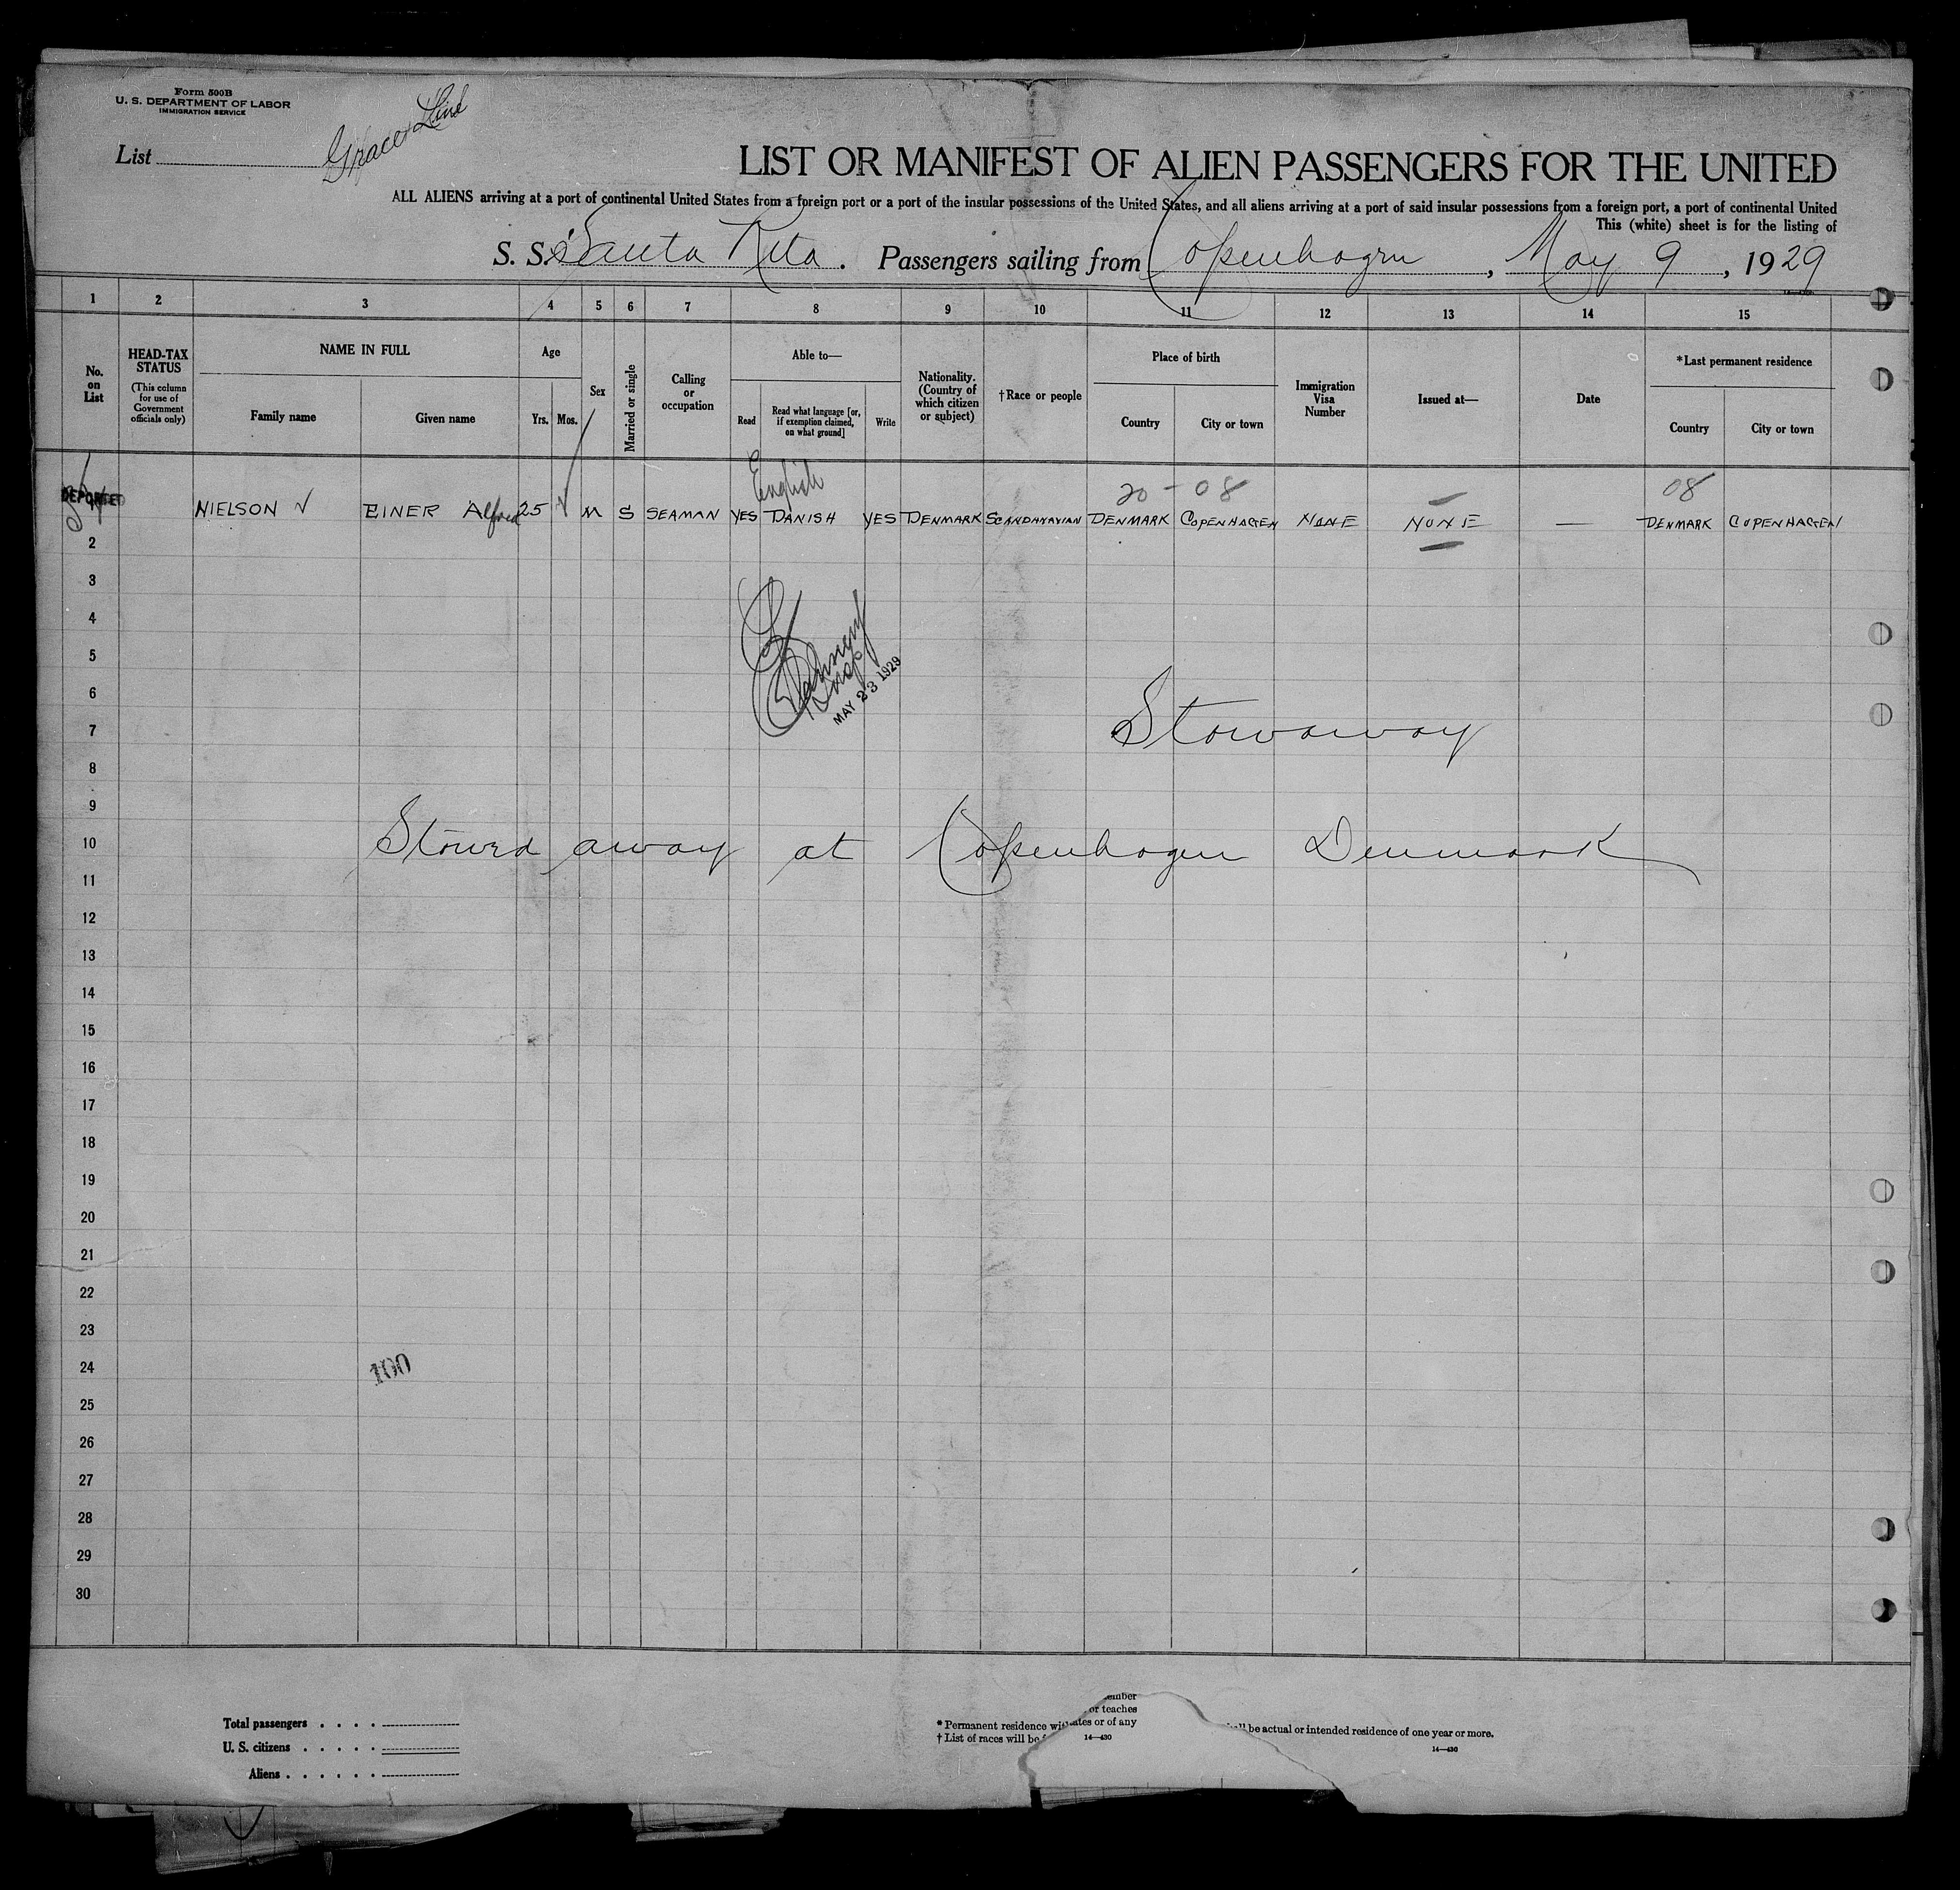 Form 500B
U. S. DEPARTMENT OF LABOR
IMMIGRATION SERVICE
List
Grace Line
LIST OR MANIFEST OF ALIEN PASSENGERS FOR THE UNITED
ALL ALIENS arriving at a port of continental United States from a foreign port or a port of the insular possessions of the United States, and all aliens arriving at a port of said insular possessions from a foreign port, a port of continental United
This (white) sheet is for the listing of
S. S. Santa Rita. Passengers sailing from Copenhagen, May 9, 1929
1 2 3 4 5 6 7 8 9 10 11 12 13 14 15
No. on List
HEAD-TAX STATUS
(This column for use of Government officials only)
NAME IN FULL
Family name
Given name
Age
Yrs.
Mos.
Sex
Married or single
Calling or occupation
Able to—
Read
Read what language [or, if exemption claimed, on what ground]
Write
Nationality. (Country of which citizen or subject)
†Race or people
Place of birth
Country
City or town
Immigration Visa Number
Issued at—
Date
*Last permanent residence
Country
City or town
English
20 - 08
08
DEPORTED
NIELSON √ EINER Alfred 25 √ M S SEAMAN YES DANISH YES DENMARK SCANDANAVIAN DENMARK COPENHAGEN NONE NONE — DENMARK COPENHAGEN
2
3
4
5
MAY 23 1929
6
7
Stowaway
8
9
10
Stowed away at Copenhagen Denmark
11
12
13
14
15
16
17
18
19
20
21
22
23
24
100
25
26
27
28
29
30
Total passengers
U. S. citizens
Aliens
or teaches
ates or of any
14—430
* Permanent residence
shall be actual or intended residence of one year or more.
† List of races will be
14—430